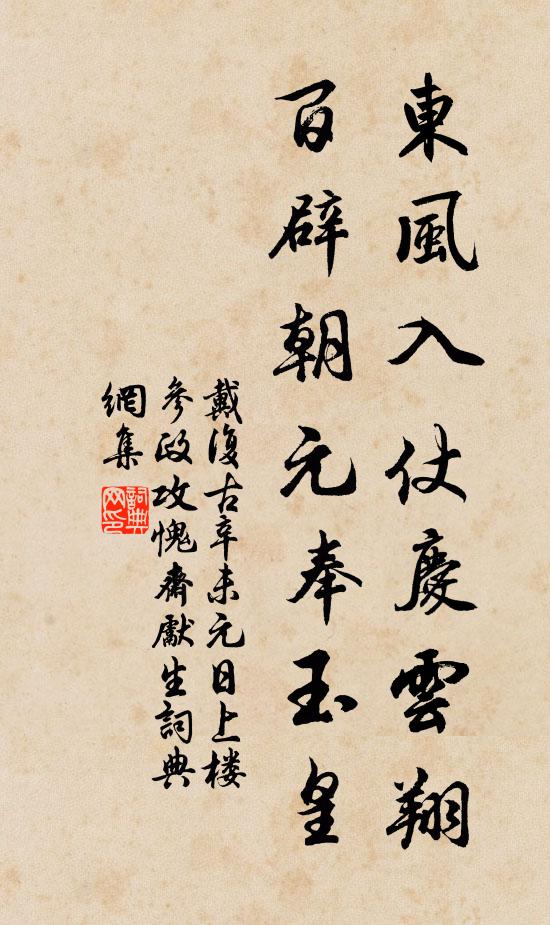 東風入仗慶雲翔
百辟朝元奉玉皇
戴復古辛未元日上楼
參政攻愧齋獻生詞典
網集
詞典網印